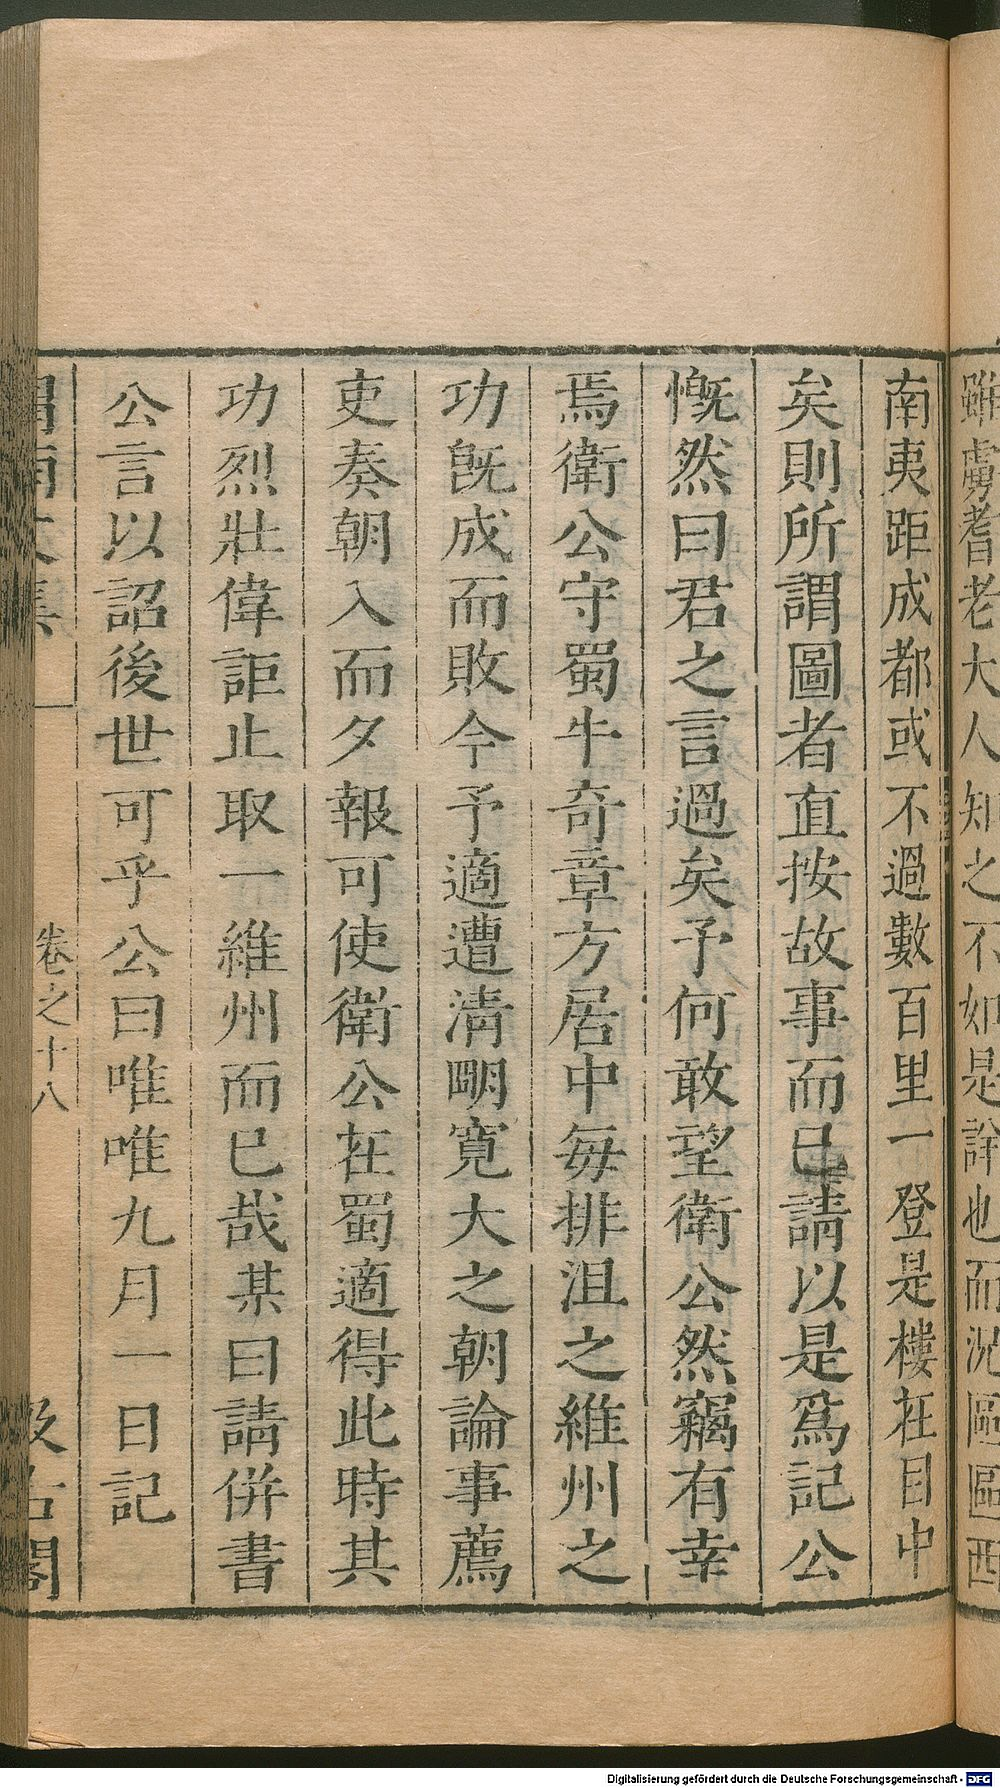 雖虜耆老大人知之不如是詳也而況區區西
南夷距成都或不過數百里一登是樓在目中
矣則所謂圖者直按故事而已請以是爲記公
慨然曰君之言過矣予何敢望衛公然竊有幸
焉衛公守蜀牛奇章方居中每排沮之維州之
功旣成而敗今予適遭淸明寬大之朝論事薦
吏奏朝入而夕報可使衛公在蜀適得此時其
功烈壯偉詎止取一維州而已哉某曰請併書
公言以詔後世可乎公曰唯唯九月一日記
渭南文集 卷之十八 汲古閣
Digitalisierung gefördert durch die Deutsche Forschungsgemeinschaft - DFG